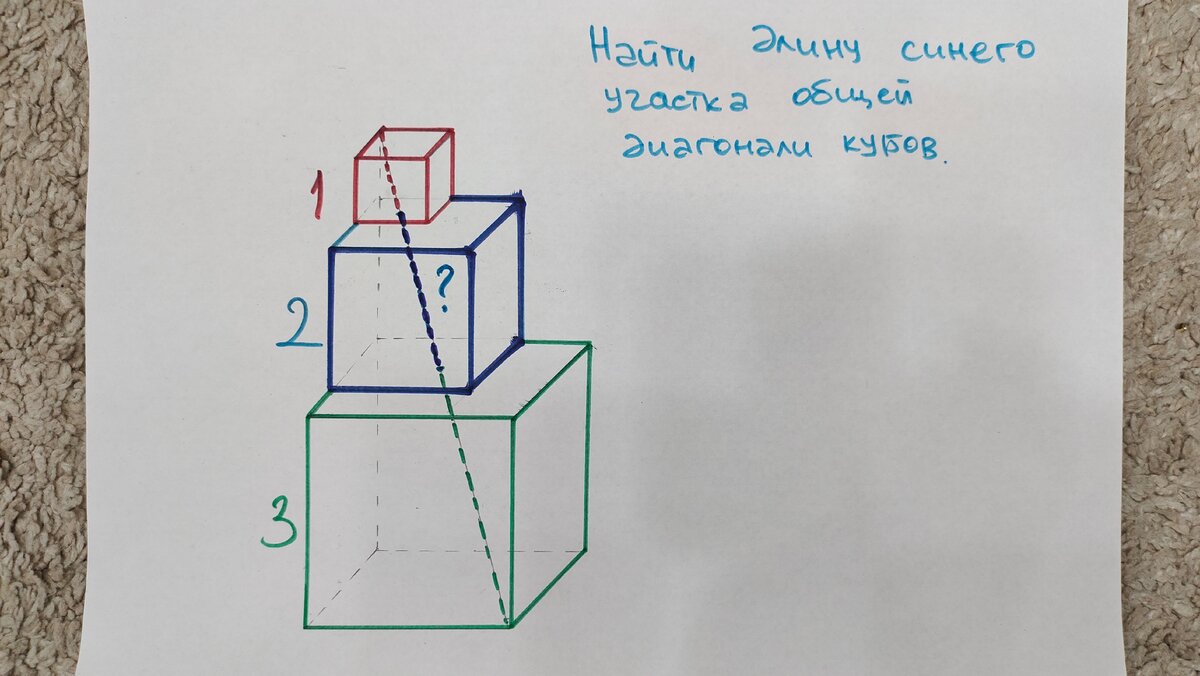 Найти длину синего
участка общей
диагонали кубов.
1
2
?
3